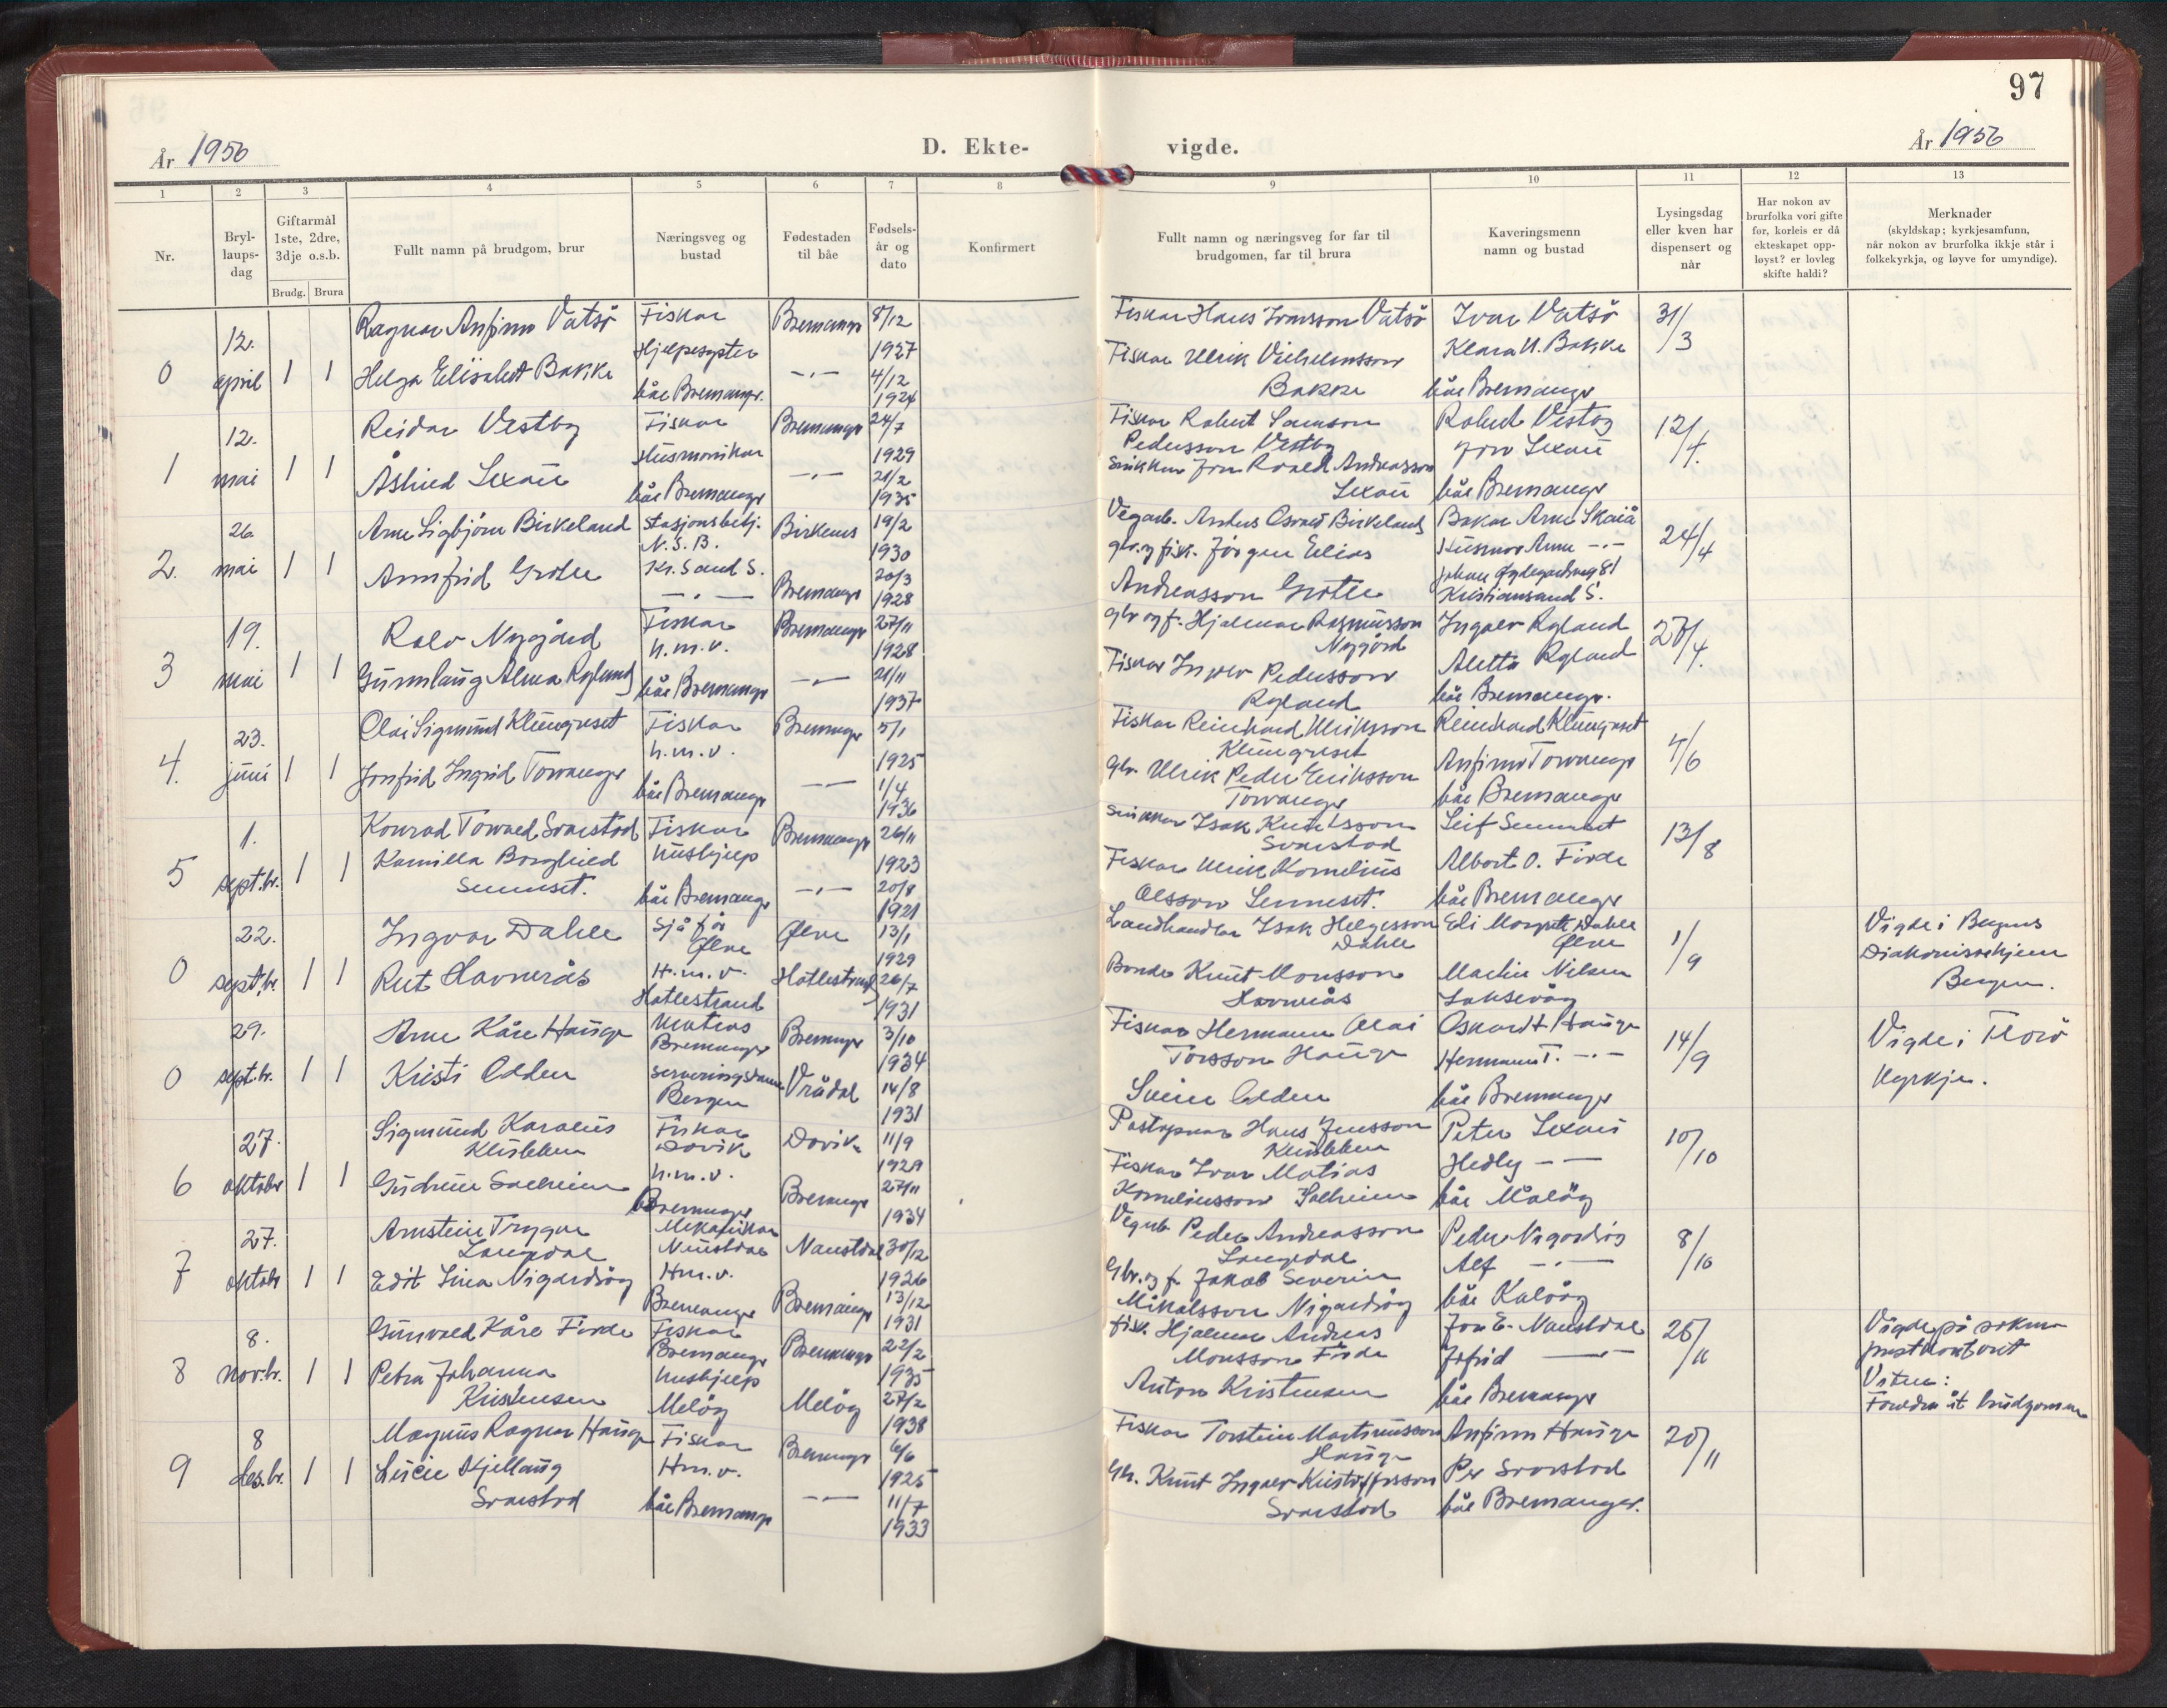 97
År 1956
D. Ekte-
vigde.
År 1956
1
2
3
4
5
6
7
8
9
10
11
12
13
Nr.
Bryl-
laups-
dag
Giftarmål
1ste, 2dre,
3dje o.s.b.
Brudg. Brura
Fullt namn på brudgom, brur
Næringsveg og
bustad
Fødestaden
til båe
Fødsels-
år og
dato
Konfirmert
Fullt namn og næringsveg for far til
brudgomen, far til brura
Kaveringsmenn
namn og bustad
Lysingsdag
eller kven har
dispensert og
når
Har nokon av
brurfolka vori gifte
før, korleis er då
ekteskapet opp-
løyst? er lovleg
skifte haldi?
Merknader
(skyldskap; kyrkjesamfunn,
når nokon av brurfolka ikkje står i
folkekyrkja, og løyve for umyndige).
0
12.
april
1 1
Ragnar Anfinn Vatsö
Helga Elisabet Bakke
Fiskar
Hjelpesyster
båe Bremanger.
Bremanger
—"—
8/12
1927
4/12
1924
Fiskar Hans Ivarsson Vatsö
Fiskar Ulrik Vilhelmsson
Bakke
Ivar Vatsö
Klara U. Bakke
båe Bremanger
31/3
1
12.
mai
1 1
Reidar Vestby
Åshild Sexau
Fiskar
Husmorvikar
båe Bremanger
Bremanger
—"—
24/7
1929
21/2
1935
Fiskar Robert Samson
Pedersson Vestby
Snikkar Jon Roald Andreasson
Sexau
Robert Vestby
Jon Sexau
båe Bremanger
12/4.
2.
26
mai
1 1
Arne Sigbjörn Birkeland
Annfrid Grotle
Stasjonsbetj.
N.S.B.
Kr.Sand S.
—"—
Birkenes
Bremanger
19/2
1930
20/3
1928
Vegarb. Anders Osvald Birkeland
gbr. og fisk. Jörgen Elias
Andreasson Grotle
Bakar Arne Skaiå
Husmor Anna —"—
Kristiansand S.
24/4
3
19.
mai
1 1
Rolv Nygård
Gunnlaug Alma Rylund
Fiskar
h.m.v.
båe Bremanger
Bremanger
—"—
27/11
1928
21/11
1937
gbr og f. Hjalmar Rasmusson
Nygård
Fiskar Ingolv Pedersson
Rylund
Ingolv Rylund
Aletta Rylund
båe Bremanger.
27/4.
4.
23.
juni
1 1
Olai Sigmund Klungreset
Jonfrid Ingrid Torvanger
Fiskar
h.m.v.
båe Bremanger
Bremanger
—"—
5/1
1925
1/4
1936
Fiskar Reinhard Ulriksson
Klungreset
Gbr. Ulrik Peder Eriksson
Torvanger
Reinhard Klungreset
Anfinn Torvanger
båe Bremanger
4/6
5
1.
sept.br.
1 1
Konrad Torvald Svarstad
Kamilla Borghild
Sennset.
Fiskar
Hushjelp
båe Bremanger
Bremanger
—"—
26/11
1923
20/8
1921
Snikkar Isak Knutsson
Svarstad
Fiskar Ulrik Kornelius
Olsson Sennset.
Leif Sennset
Albert O. Förde
båe Bremanger
13/8
0
22.
sept.br.
1 1
Ingvar Dahle
Rut Havnerås
Sjåför
Ølve
H.m.v.
Hatlestrand
Ølve
Hatlestrand
13/1
1929
26/7
1931
Landhandlar Isak Helgesson
Dahle
Bonde Knut Monsson
Havnerås
Eli Margrete Dahle
Ølve
Martin Nilsen
Laksevåg
1/9
Vigde i Bergens
Diakonissehjem
Bergen.
0
29.
sept.br.
1 1
Arne Kåre Hauge
Kristi Odden
Matros
Bremanger
Serveringsdame
Bergen
Bremanger
Vrådal
3/10
1934
14/8
1931
Fiskar Hermann Olai
Torsson Hauge
Svein Odden
Oskar H Hauge
Hermann T. —"—
båe Bremanger
14/9
Vigde i Florö
Kyrkje.
6
27.
oktober
1 1
Sigmund Karolius
Klubben
Gudrun Solheim
Fiskar
Davik
h.m.v.
Bremanger
Davik
Bremanger
11/9
1929
27/11
1934
Postopnar Hans Jensson
Klubben
Fiskar Ivar Matias
Korneliusson Solheim
Peter Sexau
Hedly —"—
båe Måløy
10/10
7
27.
oktobr
1 1
Arnstein Trygve
Langedal
Edit Lina Nigardsöy
Mekanikar
Naustdal
Hm.v.
Bremanger
Naustdal
Bremanger
30/12
1926
13/12
1931
Vegarb. Peder Andreasson
Langedal
Gbr. og f. Jakob Severin
Mikalsson Nigardsöy
Peder Nigardsöy
Alf —"—
båe Kalvåg
8/10
8
8.
nov.br.
1 1
Gunvald Kåre Förde
Petra Johanna
Kristensen
Fiskar
Bremanger
Hushjelp
Melöy
Bremanger
Melöy
22/2
1935
27/2
1938
fisk. Hjalmar Andreas
Monsson Förde
Anton Kristensen
Jon E. Naustdal
Jofrid —"—
båe Bremanger
25/11
Vigde på sokne-
prestkontoret
Vitne:
Foreldre åt brudgomen
9
8
des.br.
1 1
Magnus Ragnar Hauge
Lucie Kjellaug
Svarstad
Fiskar
Hm.v.
båe Bremanger
Bremanger
—"—
6/6
1925
11/7
1933
Fiskar Torstein Martinusson
Hauge
Gbr. Knut Ingolv Kristoffersson
Svarstad
Anfinn Hauge
Per Svarstad
båe Bremanger.
20/11